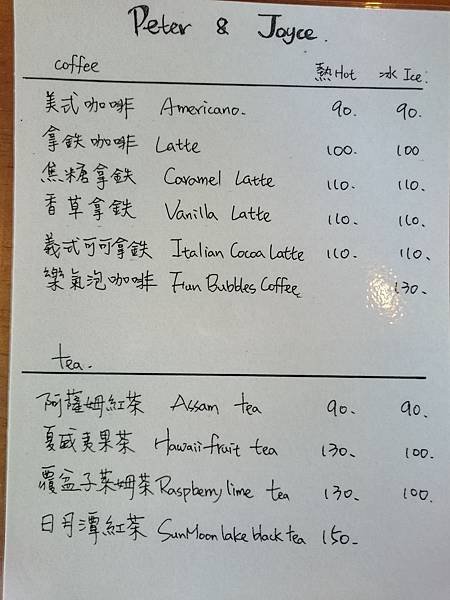 Peter & Joyce.
coffee 熱Hot 冰 Ice.
美式咖啡 Americano. 90. 90.
拿鉄咖啡 Latte 100. 100
焦糖拿鉄 Caramel Latte 110. 110.
香草拿鉄 Vanilla Latte 110. 110.
義式可可拿鉄 Italian Cocoa Latte 110. 110.
樂氣泡咖啡 Fun Bubbles Coffee 130.
tea.
阿薩姆紅茶 Assam tea 90. 90.
夏威夷果茶 Hawaii-fruit tea 130. 100.
覆盆子萊姆茶 Raspberry lime tea 130. 100.
日月潭紅茶 SunMoon lake black tea 150.